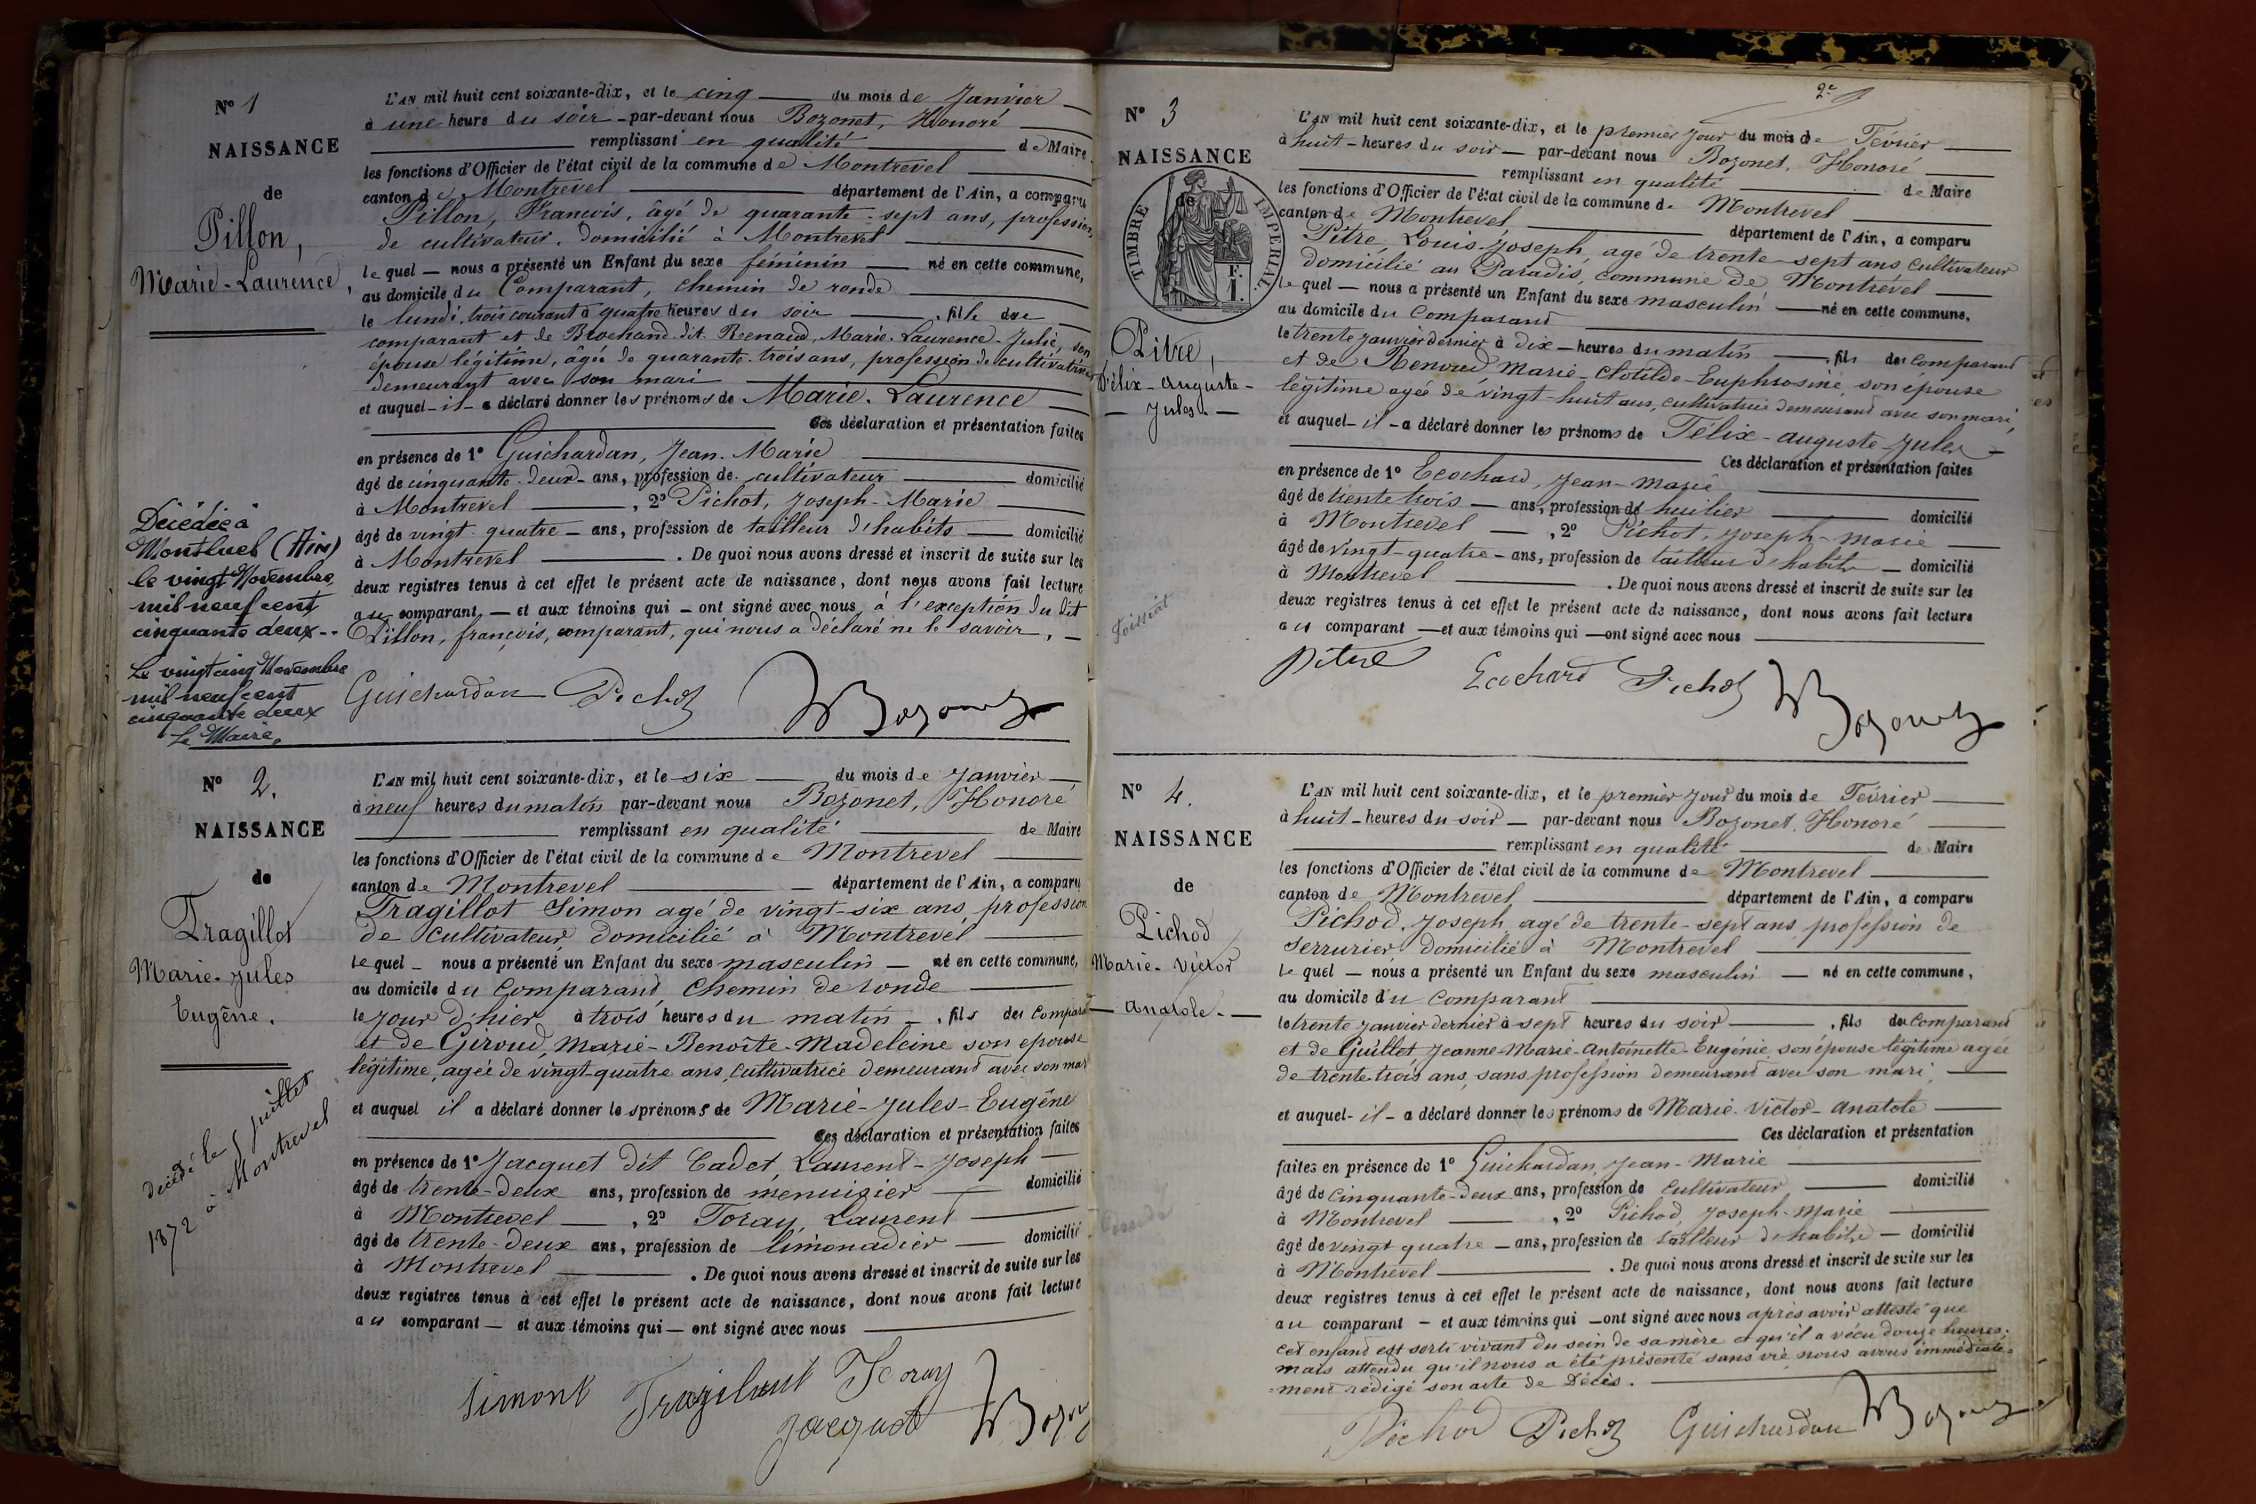 N° 1
NAISSANCE
de
Pillon,
Marie-Laurence,
Décédée à
Montluel (Ain)
le vingt Novembre
mil neuf cent
cinquante deux --
Le vingt cinq Novembre
mil neuf cent
cinquante deux
Le Maire.
L'AN mil huit cent soixante-dix, et le cinq du mois de Janvier
à une heure du soir par-devant nous Bozonet, Honoré
remplissant en qualité de Maire
les fonctions d'Officier de l'état civil de la commune de Montrevel
canton de Montrevel département de l'Ain, a comparu
Pillon, François, âgé de quarante-sept ans, profession
de cultivateur, domicilié à Montrevel
lequel — nous a présenté un Enfant du sexe féminin né en cette commune,
au domicile du Comparant, chemin de ronde
le lundi trois courant à quatre heures du soir , fille du
comparant et de Brochand dit Renaud, Marie-Laurence-Julie, son
épouse légitime, âgée de quarante-trois ans, profession de cultivatrice
demeurant avec son mari
et auquel - il - a déclaré donner les prénoms de Marie-Laurence
Ces déclaration et présentation faites
en présence de 1° Guichardan, Jean-Marie
âgé de cinquante-deux ans, profession de cultivateur domicilié
à Montrevel , 2° Pichot, Joseph-Marie
âgé de vingt-quatre — ans, profession de tailleur d'habits domicilié
à Montrevel . De quoi nous avons dressé et inscrit de suite sur les
deux registres tenus à cet effet le présent acte de naissance, dont nous avons fait lecture
au comparant, — et aux témoins qui — ont signé avec nous, à l'exception du dit
Pillon, françois, comparant, qui nous a déclaré ne le savoir, —
Guichardan Pichot HBozonet
N° 2.
NAISSANCE
de
Tragillot
Marie-Jules
Eugène.
décédé le 5 juillet
1872 à Montrevel
L'AN mil huit cent soixante-dix, et le six du mois de Janvier
à neuf heures du matin par-devant nous Bozonet, Honoré
remplissant en qualité de Maire
les fonctions d'Officier de l'état civil de la commune de Montrevel
canton de Montrevel département de l'Ain, a comparu
Tragillot Simon agé de vingt-six ans, profession
de cultivateur, domicilié à Montrevel
lequel — nous a présenté un Enfant du sexe masculin — né en cette commune,
au domicile du Comparant, Chemin de ronde
le jour d'hier à trois heures du matin — , fils du Compar
et de Giroud, Marie-Benoîte-Madeleine son épouse
légitime, agée de vingt-quatre ans, cultivatrice demeurant avec son mari
et auquel il a déclaré donner les prénoms de Marie-Jules-Eugène
Ces déclaration et présentation faites
en présence de 1° Jacquet dit Cadet, Laurent-Joseph
âgé de trente-deux ans, profession de menuisier domicilié
à Montrevel , 2° Foray, Laurent
âgé de trente-deux ans, profession de limonadier domicilié
à Montrevel . De quoi nous avons dressé et inscrit de suite sur les
deux registres tenus à cet effet le présent acte de naissance, dont nous avons fait lecture
au comparant — et aux témoins qui — ont signé avec nous
Simont Foray
Jacquet HBozo
2e
N° 3
NAISSANCE
de
TIMBRE IMPERIAL
Pitre,
Félix-Auguste-
Jules
L'AN mil huit cent soixante-dix, et le premier jour du mois de Février
à huit — heures du soir — par-devant nous Bozonet, Honoré
remplissant en qualité de Maire
les fonctions d'Officier de l'état civil de la commune de Montrevel
canton de Montrevel département de l'Ain, a comparu
Pitre, Louis-Joseph, agé de trente-sept ans, cultivateur
domicilié au Paradis, commune de Montrevel
lequel — nous a présenté un Enfant du sexe masculin né en cette commune,
au domicile du Comparant
le trente janvier dernier à dix — heures du matin , fils du Comparant
et de Renoud Marie-Clotilde-Euphrosine, son épouse
légitime agée de vingt-huit ans, cultivatrice demeurant avec son mari,
et auquel - il - a déclaré donner les prénoms de Félix-Auguste-Jules
Ces déclaration et présentation faites
en présence de 1° Ecochard, Jean-Marie
âgé de trente-trois — ans, profession de huilier domicilié
à Montrevel , 2° Pichot, Joseph-Marie
âgé de vingt-quatre — ans, profession de tailleur d'habits — domicilié
à Montrevel . De quoi nous avons dressé et inscrit de suite sur les
deux registres tenus à cet effet le présent acte de naissance, dont nous avons fait lecture
au comparant — et aux témoins qui — ont signé avec nous
Pitre Ecochard Pichot HBozonet
N° 4.
NAISSANCE
de
Pichod
Marie-Victor
Anatole.
L'AN mil huit cent soixante-dix, et le premier jour du mois de Février
à huit — heures du soir — par-devant nous Bozonet, Honoré
remplissant en qualité de Maire
les fonctions d'Officier de l'état civil de la commune de Montrevel
canton de Montrevel département de l'Ain, a comparu
Pichod, Joseph agé de trente-sept ans profession de
serrurier, domicilié à Montrevel
lequel — nous a présenté un Enfant du sexe masculin — né en cette commune,
au domicile du Comparant
le trente janvier dernier à sept heures du soir , fils du Comparant
et de Guillet, Jeanne-Marie-Antoinette-Eugénie, son épouse légitime agée
de trente-trois ans, sans profession demeurant avec son mari,
et auquel - il - a déclaré donner les prénoms de Marie-Victor-Anatole
Ces déclaration et présentation
faites en présence de 1° Guichardan, Jean-Marie
âgé de cinquante-deux ans, profession de cultivateur domicilié
à Montrevel , 2° Pichod, Joseph-Marie
âgé de vingt quatre — ans, profession de tailleur d'habits — domicilié
à Montrevel . De quoi nous avons dressé et inscrit de suite sur les
deux registres tenus à cet effet le présent acte de naissance, dont nous avons fait lecture
au comparant — et aux témoins qui — ont signé avec nous après avoir attesté que
cet enfant est sorti vivant du sein de sa mère et qu'il a vécu douze heures.
mais attendu qu'il nous a été présenté sans vie, nous avons immédiate-
ment rédigé son acte de Décès.
Pichod Pichot Guichardan HBozonet